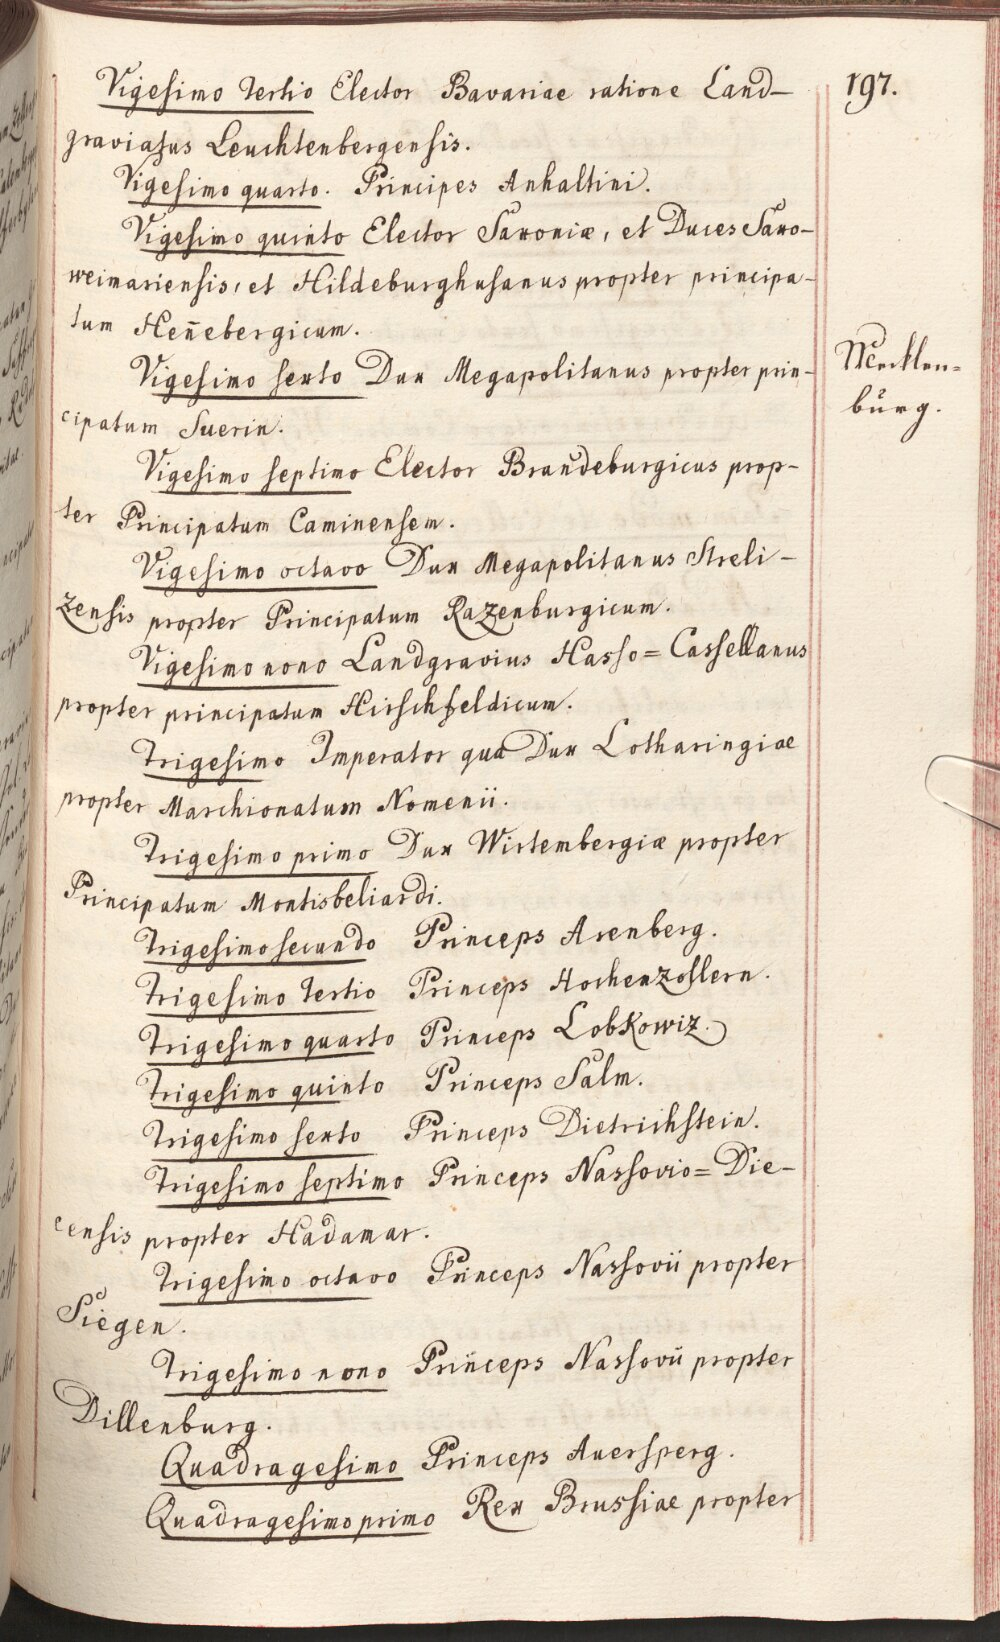 197.
Vigesimo tertio Elector Bavariae ratione Land-
graviatus Leuchtenbergensis.
Vigesimo quarto. Principes Anhaltini.
Vigesimo quinto Elector Saxoniæ, et Duces Saxo-
weimariensis, et Hildeburghusanus propter principa-
tum Hen̄ebergicum.
Vigesimo sexto Dux Megapolitanus propter prin-
cipatum Suerin.
Mecklen=
burg.
Vigesimo septimo Elector Brandeburgicus prop-
ter Principatum Caminensem.
Vigesimo octavo Dux Megapolitanus Streli-
zensis propter Principatum Razenburgicum.
Vigesimo nono Landgravius Hasso=Cassellanus
propter principatum Hirschfeldicum.
Trigesimo Imperator qua Dux Lotharingiae
propter Marchionatum Nomenii.
Trigesimo primo Dux Wirtembergiæ propter
Principatum Montisbeliardi.
Trigesimo secundo Princeps Arenberg.
Trigesimo tertio Princeps Hochenzollern.
Trigesimo quarto Princeps Lobkowiz.
Trigesimo quinto Princeps Salm.
Trigesimo sexto Princeps Dietrichstein.
Trigesimo septimo Princeps Nassovio=Die-
censis propter Hadamar.
Trigesimo octavo Princeps Nassovii propter
Siegen.
Trigesimo nono Princeps Nassovii propter
Dillenburg.
Quadragesimo Princeps Auersperg.
Quadragesimo primo Rex Brussiae propter